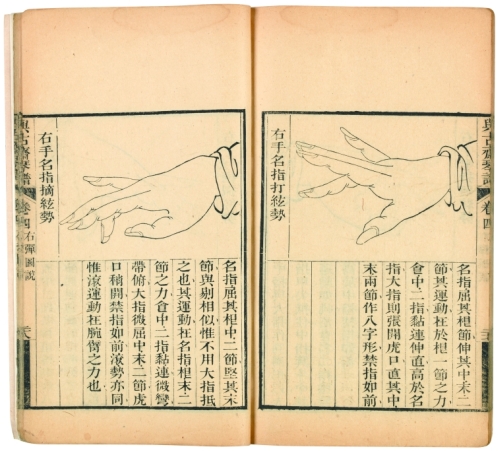 與古齋琴譜
卷四
右手名指打絃勢
名指屈其根節伸其中末二
節其運動在於根一節之力
會中二指黏連伸直高於名
指大指則張開虎口直其中
末兩節作八字形禁指如前
右手名指摘絃勢
名指屈其根中二節堅其末
節與剔相似惟不用大指抵
之也其運動在名指根末二
節之力會中二指黏連微彎
帶俯大指微屈中末二節虎
口稍開禁指如前滾勢亦同
惟滾運動在腕臂之力也
與古齋琴譜
卷四
右彈圖説